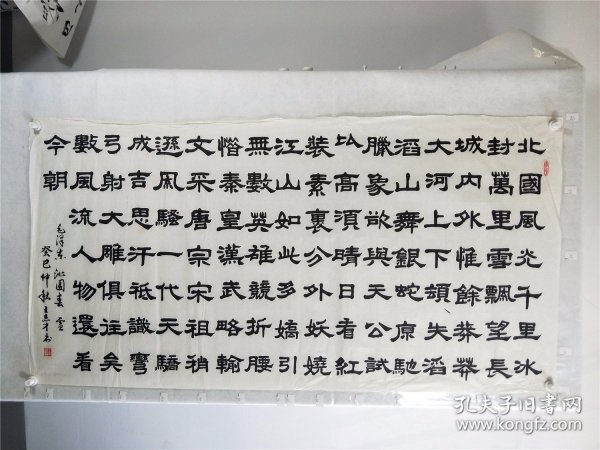 北國風光千里冰
封萬里雪飄望長
城内外惟餘莽莽
大河上下頓失滔
滔山舞銀蛇原馳
臘象欲與天公試
比高須晴日看紅
裝素裹分外妖嬈
江山如此多嬌引
無數英雄競折腰
惜秦皇漢武略輸
文采唐宗宋祖稍
遜風騷一代天驕
成吉思汗祗識彎
弓射大雕俱往矣
數風流人物還看
今朝
毛泽东沁園春雪
癸巳仲秋
孔夫子旧书网
www.kongfz.com